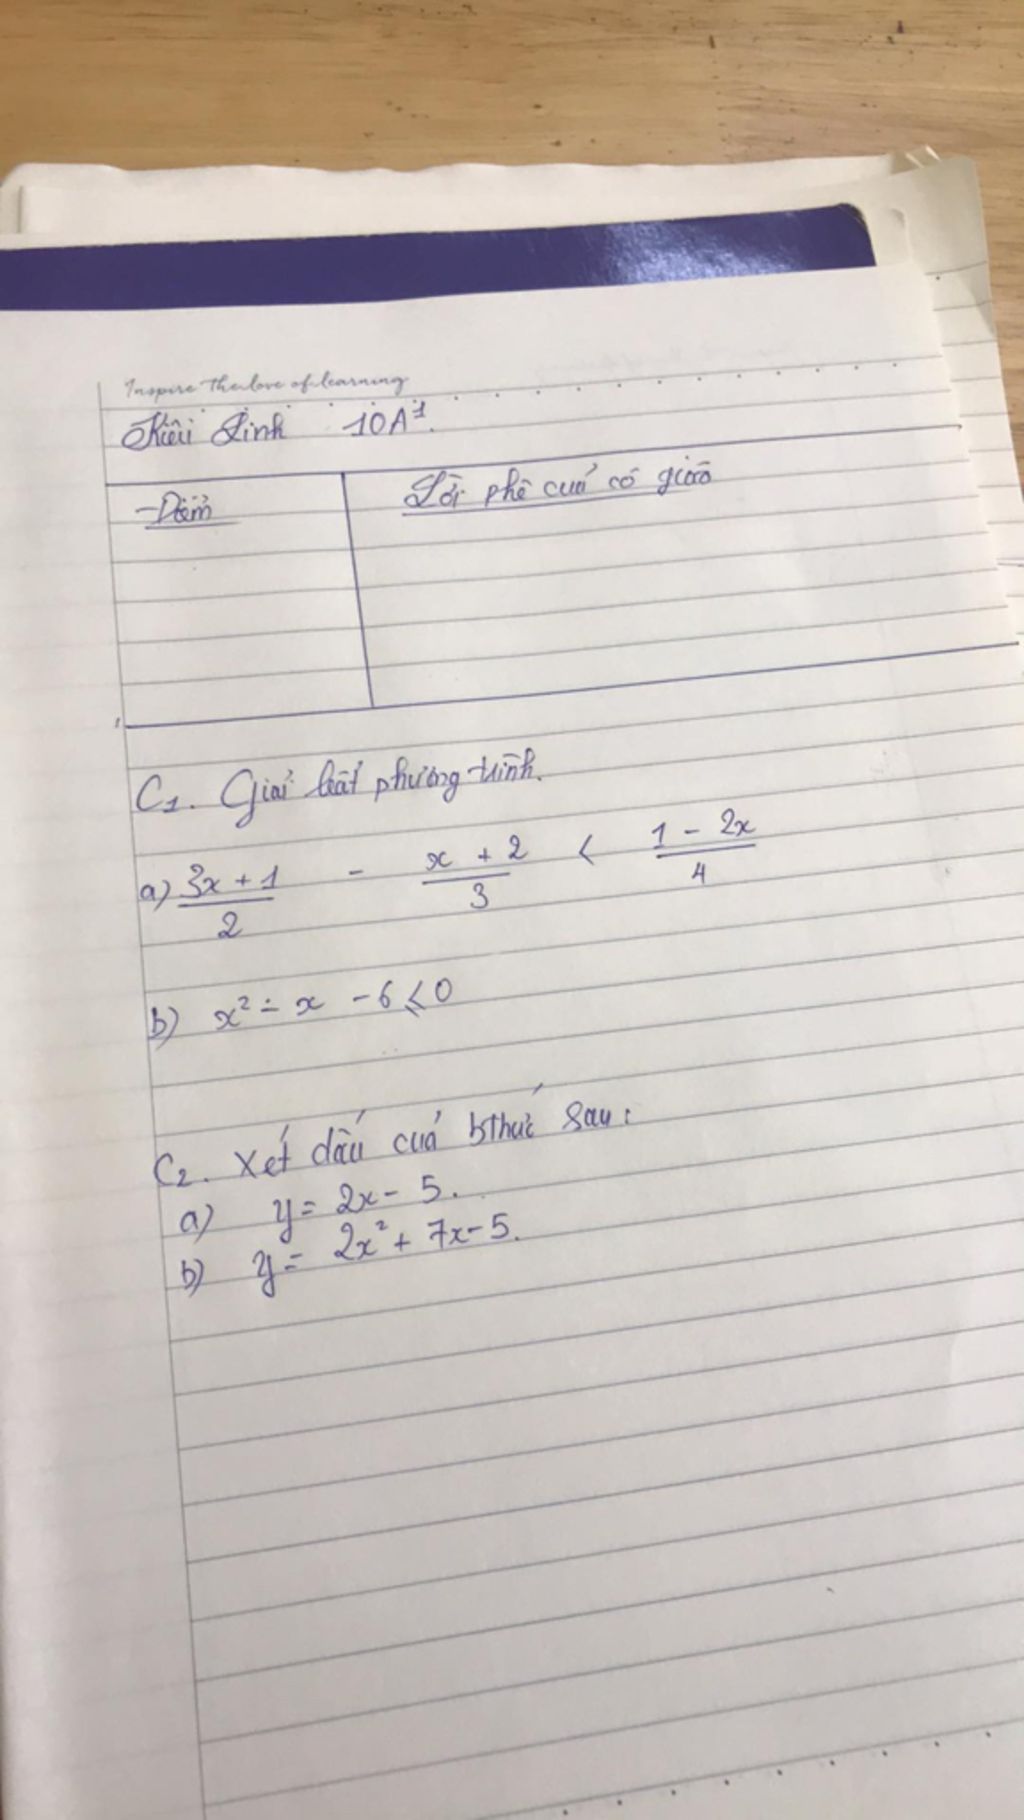 Inspire the love of learning
Kiều Linh 10A1.
Điểm
Lời phê của cô giáo
C1. Giải bất phương trình.
a) (3x + 1)/2 - (x + 2)/3 < (1 - 2x)/4
b) x² - x - 6 ≤ 0
C2. Xét dấu của bthức sau:
a) y = 2x - 5.
b) y = 2x² + 7x - 5.